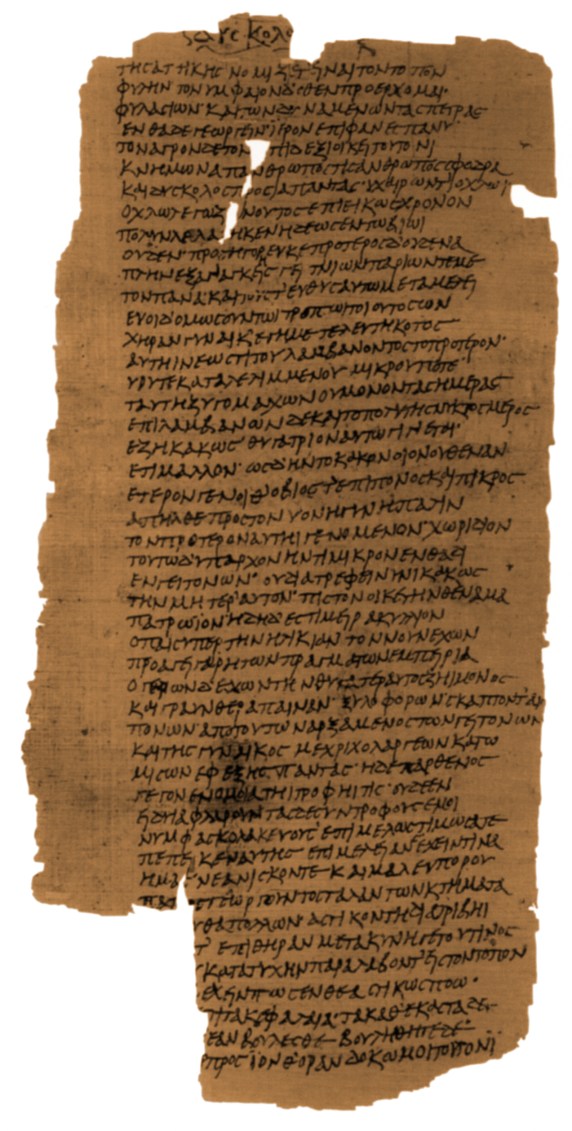 ΚΟΛΟ
ΤΗϹ ΑΤΤΙΚΗϹ ΝΟΜΙΖΕΤ ΕΙΝΑΙ ΤΟΝ ΤΟΠΟΝ
ΦΥΛΗΝ ΤΟ ΝΥΜΦΑΙΟΝ Δ ΟΘΕΝ ΠΡΟΕΡΧΟΜΑΙ
ΦΥΛΑϹΙΩΝ ΚΑΙ ΤΩΝ ΔΥΝΑΜΕΝΩΝ ΤΑϹ ΠΕΤΡΑϹ
ΕΝΘΑΔΕ ΓΕΩΡΓΕΙΝ ΙΕΡΟΝ ΕΠΙΦΑΝΕϹ ΠΑΝΥ
ΤΟΝ ΑΓΡΟΝ ΔΕ ΤΟΝ ΕΠΙ ΔΕΞΙ ΟΙΚΕΙ ΤΟΥΤΟΝΙ
ΚΝΗΜΩΝ ΑΠΑΝΘΡΩΠΟϹ ΤΙϹ ΑΝΘΡΩΠΟϹ ϹΦΟΔΡΑ
ΚΑΙ ΔΥϹΚΟΛΟϹ ΠΡΟϹ ΑΠΑΝΤΑϹ ΟΥ ΧΑΙΡΩΝ Τ ΟΧΛΩΙ
ΟΧΛΩ ΛΕΓΩ ΖΩΝ ΟΥΤΟϹ ΕΠΙΕΙΚΩϹ ΧΡΟΝΟΝ
ΠΟΛΥΝ ΛΕΛΑΛΗΚΕΝ ΗΔΕΩϹ ΕΝ ΤΩ ΒΙΩΙ
ΟΥΔΕΝΙ ΠΡΟϹΗΓΟΡΕΥΚΕ ΠΡΟΤΕΡΟϹ Δ ΟΥΔΕΝΑ
ΠΛΗΝ ΕΞ ΑΝΑΓΚΗϹ ΓΕΙΤΝΙΩΝ ΠΑΡΙΩΝ Τ ΕΜΕ
ΤΟΝ ΠΑΝΑ ΚΑΙ ΤΟΥΤ ΕΥΘΥϹ ΑΥΤΩ ΜΕΤΑΜΕΛΕΙ
ΕΥ ΟΙΔ ΟΜΩϹ ΟΥΝ ΤΩΙ ΤΡΟΠΩ ΤΟΙΟΥΤΟϹ ΩΝ
ΧΗΡΑΝ ΓΥΝΑΙΚ ΕΓΗΜΕ ΤΕΤΕΛΕΥΤΗΚΟΤΟϹ
ΑΥΤΗΙ ΝΕΩϹΤΙ ΤΟΥ ΛΑΒΟΝΤΟϹ ΤΟ ΠΡΟΤΕΡΟΝ
ΥΟΥ ΤΕ ΚΑΤΑΛΕΛΙΜΜΕΝΟΥ ΜΙΚΡΟΥ ΤΟΤΕ
ΤΑΥΤΗ ΖΥΓΟΜΑΧΩΝ ΟΥ ΜΟΝΟΝ ΤΑϹ ΗΜΕΡΑϹ
ΕΠΙΛΑΜΒΑΝΩΝ ΔΕ ΚΑΙ ΤΟ ΠΟΛΥ ΤΗϹ ΝΥΚΤΟϹ ΜΕΡΟϹ
ΕΖΗ ΚΑΚΩϹ ΘΥΓΑΤΡΙΟΝ ΑΥΤΩ ΓΙΝΕΤΑΙ
ΕΤΙ ΜΑΛΛΟΝ ΩϹ Δ ΗΝ ΤΟ ΚΑΚΟΝ ΟΙΟΝ ΟΥΘΕΝ ΑΝ
ΕΤΕΡΟΝ ΓΕΝΟΙΘ Ο ΒΙΟϹ Τ ΕΠΙΠΟΝΟϹ ΚΑΙ ΠΙΚΡΟϹ
ΑΠΗΛΘΕ ΠΡΟϹ ΤΟΝ ΥΟΝ Η ΓΥΝΗ ΠΑΛΙΝ
ΤΟΝ ΠΡΟΤΕΡΟΝ ΑΥΤΗΙ ΓΕΝΟΜΕΝΟΝ ΧΩΡΙΔΙΟΝ
ΤΟΥΤΩ Δ ΥΠΑΡΧΟΝ ΗΝ ΤΙ ΜΙΚΡΟΝ ΕΝΘΑΔΙ
ΕΝ ΓΕΙΤΟΝΩΝ ΟΥ ΔΙΑΤΡΕΦΕΙ ΝΥΝΙ ΚΑΚΩϹ
ΤΗΝ ΜΗΤΕΡ ΑΥΤΟΝ ΠΙϹΤΟΝ ΟΙΚΕΤΗΝ Θ ΕΝΑ ΜΑ
ΠΑΤΡΩΙΟΝ ΗΔΗ Δ ΕϹΤΙ ΜΕΙΡΑΚΥΛΛΙΟΝ
Ο ΠΑΙϹ ΥΠΕΡ ΤΗΝ ΗΛΙΚΙΑΝ ΤΟΝ ΝΟΥΝ ΕΧΩΝ
ΠΡΟΑΓΕΙ ΓΑΡ Η ΤΩΝ ΠΡΑΓΜΑΤΩΝ ΕΜΠΕΙΡΙΑ
Ο ΓΕΡΩΝ Δ ΕΧΩΝ ΤΗΝ ΘΥΓΑΤΕΡ ΑΥΤΟϹ ΖΗΙ ΜΟΝΟϹ
ΚΑΙ ΓΡΑΥΝ ΘΕΡΑΠΑΙΝΑΝ ΞΥΛΟΦΟΡΩΝ ϹΚΑΠΤΩΝ Τ ΑΕΙ
ΠΟΝΩΝ ΑΠΟ ΤΟΥΤΩΝ ΑΡΞΑΜΕΝΟϹ ΤΩΝ ΓΕΙΤΟΝΩΝ
ΚΑΙ ΤΗϹ ΓΥΝΑΙΚΟϹ ΜΕΧΡΙ ΧΟΛΑΡΓΕΩΝ ΚΑΤΩ
ΜΙϹΩΝ ΕΦΕΞΗϹ ΠΑΝΤΑϹ Η ΔΕ ΠΑΡΘΕΝΟϹ
ΓΕΓΟΝΕΝ ΟΜΟΙΑ ΤΗΙ ΤΡΟΦΗΙ ΤΙϹ ΟΥΔΕ ΕΝ
ΕΙΔΥΙΑ ΦΛΑΥΡΟΝ ΤΑϹ ΔΕ ϹΥΝΤΡΟΦΟΥϹ ΕΜΟΙ
ΝΥΜΦΑϹ ΚΟΛΑΚΕΥΟΥϹ ΕΠΙΜΕΛΩϹ ΤΙΜΩϹΑ ΤΕ
ΠΕΠΕΙΚΕΝ ΑΥΤΗϹ ΕΠΙΜΕΛΕΙΑΝ ΕΧΕΙΝ ΤΙΝΑ
ΗΜΑϹ ΝΕΑΝΙϹΚΟΝ ΤΕ ΚΑΙ ΜΑΛ ΕΥΠΟΡΟΥ
ΠΑΤΡΟϹ ΓΕΩΡΓΟΥΝΤΟϹ ΤΑΛΑΝΤΩΝ ΚΤΗΜΑΤΑ
ΥΘΑ ΠΟΛΛΩΝ ΑϹΤΙΚΟΝ ΤΗ ΔΙΑΤΡΙΒΗΙ
Τ ΕΠΙ ΘΗΡΑΝ ΜΕΤΑ ΚΥΝΗΓΕΤΟΥ ΤΙΝΟϹ
ΚΑΤΑ ΤΥΧΗΝ ΠΑΡΑΛΑΒΟΝΤ ΕΙϹ ΤΟΝ ΤΟΠΟΝ
ΕΧΕΙΝ ΠΩϹ ΕΝΘΕΑϹΤΙΚΩϹ ΠΟΩ
ΤΑ ΚΕΦΑΛΑΙΑ ΤΑ ΚΑΘ ΕΚΑϹΤΑ ΔΕ
ΕΑΝ ΒΟΥΛΕϹΘΕ ΒΟΥΛΗΘΗΤΕ ΔΕ
ΠΡΟϹΙΟΝΘ ΟΡΑΝ ΔΟΚΩ ΜΟΙ ΤΟΥΤΟΝΙ